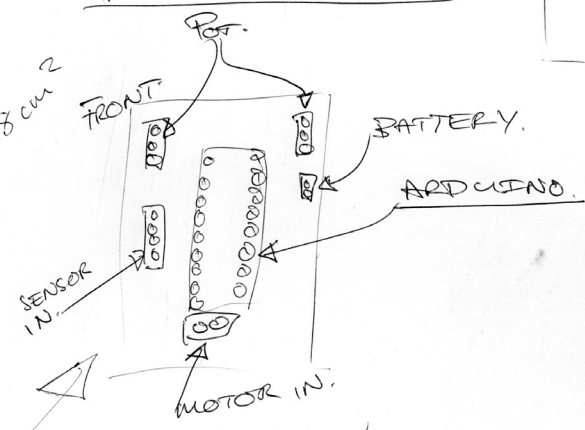 POT.
8 cm²
FRONT.
BATTERY.
ARDUINO.
SENSOR
IN.
MOTOR IN.